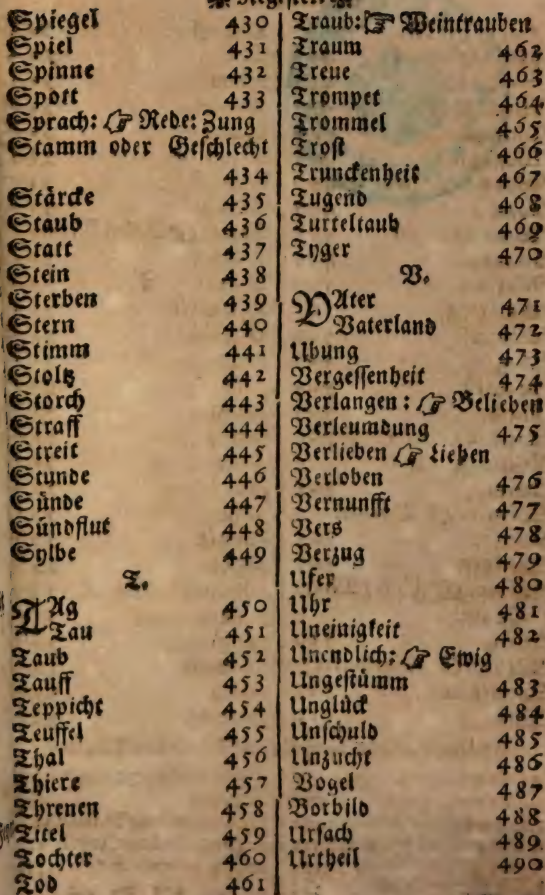 Register.
Spiegel 430
Spiel 431
Spinne 432
Spott 433
Sprach: ☞ Rede: Zung
Stamm oder Geschlecht
434
Stärcke 435
Staub 436
Statt 437
Stein 438
Sterben 439
Stern 440
Stimm 441
Stoltz 442
Storch 443
Straff 444
Streit 445
Stunde 446
Sünde 447
Sündflut 448
Sylbe 449
T.
TAg 450
Tau 451
Taub 452
Tauff 453
Teppicht 454
Teuffel 455
Thal 456
Thiere 457
Threnen 458
Titel 459
Tochter 460
Tod 461
Traub: ☞ Weintrauben
Traum 462
Treue 463
Trompet 464
Trommel 465
Trost 466
Trunckenheit 467
Tugend 468
Turteltaub 469
Tyger 470
V.
VAter 471
Vaterland 472
Ubung 473
Vergessenheit 474
Verlangen: ☞ Belieben
Verleumdung 475
Verlieben ☞ Lieben
Verloben 476
Vernunfft 477
Vers 478
Verzug 479
Ufer 480
Uhr 481
Uneinigkeit 482
Unendlich: ☞ Ewig
Ungestümm 483
Unglück 484
Unschuld 485
Unzucht 486
Vogel 487
Vorbild 488
Ursach 489
Urtheil 490